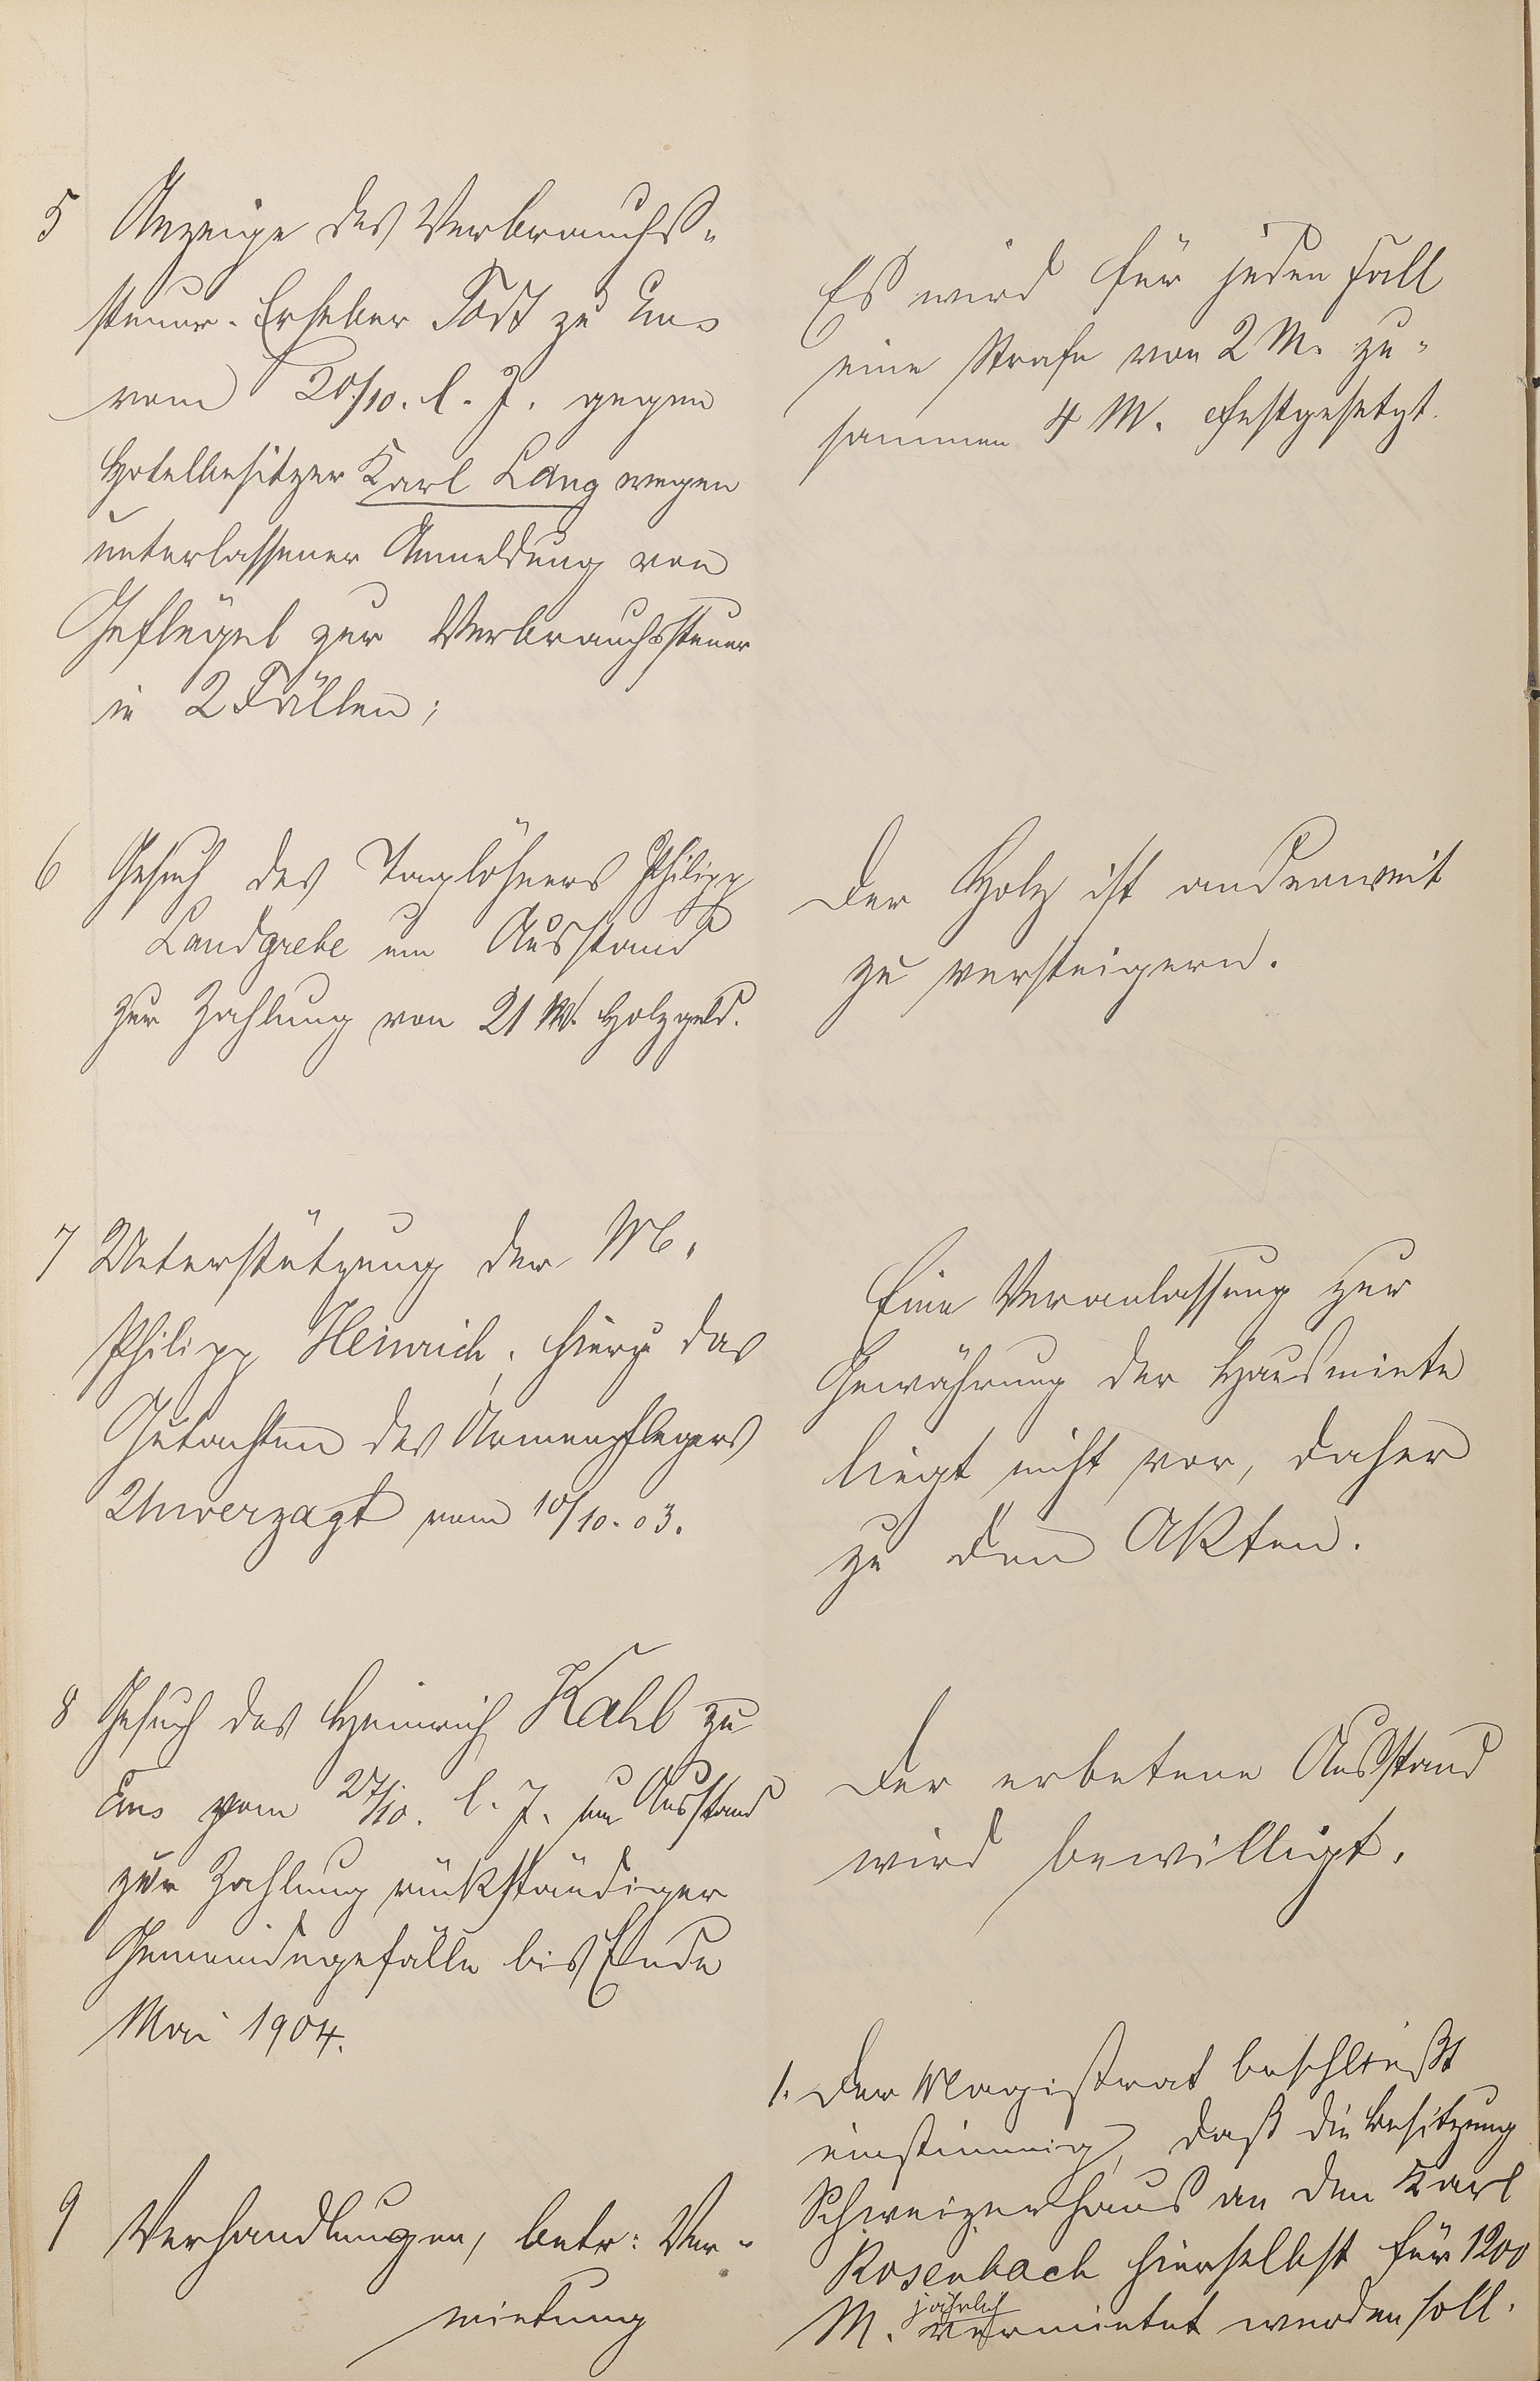 5 Anzeige des Verbrauchs-
steuer-Erheber Jost zu Ems
vom 20/10. l. J. gegen
Hotelbesitzer Karl Lang wegen
unterlassener Anmeldung von
Geflügel zur Verbrauchssteuer
in 2 Fällen;
Es wird für jeden Fall
eine Strafe von 2 M. zu-
sammen 4 M. festgesetzt.
6 Gesuch des Taglöhners Philipp
Landgrebe um Ausstand
zur Zahlung von 21 M. Holzgeld.
Der Holz ist anderweit
zu versteigern.
7 Unterstützung der
Philipp Heinrich, hierzu das
Gutachten des Armenpflegers
Unverzagt vom 10/10.03.
Eine Veranlassung zur
Gewährung der Hausmiete
liegt nicht vor, daher
zu den Akten.
8 Gesuch des Heinrich Kalb zu
Ems vom 27/10. l. J. um Ausstand
zur Zahlung rückständiger
Gemeindegefälle bis Ende
Mai 1904.
Der erbetene Ausstand
wird bewilligt.
9 Verhandlungen, betr: Ver-
mietung
1. Der Magistrat beschließt
einstimmig, daß die Besitzung
Schweizerhaus an den Karl
Rosenbach hierselbst für 1200
M. jährlich vermietet werden soll.